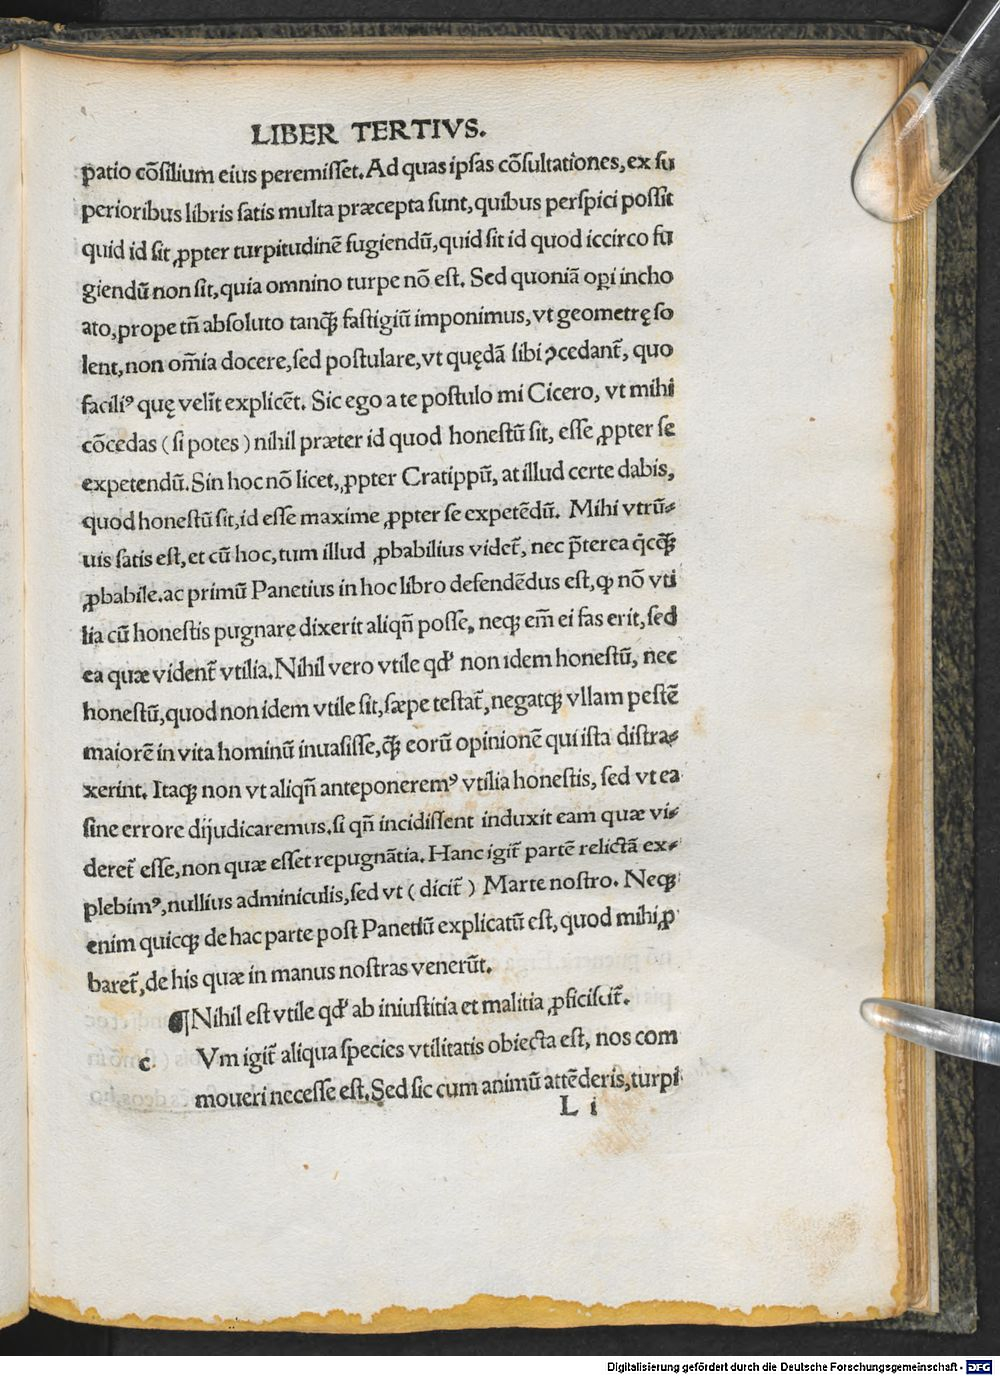 LIBER TERTIVS.
patio cõsilium eius peremisset. Ad quas ipsas cõsultationes, ex su
perioribus libris satis multa præcepta sunt, quibus perspici possit
quid id sit, ꝓpter turpitudinẽ fugiendũ, quid sit id quod iccirco fu
giendũ non sit, quia omnino turpe nõ est. Sed quoniã oꝑi incho
ato, prope tñ absoluto tanꝗ̃ fastigiũ imponimus, vt geometrę so
lent, non om̃ia docere, sed postulare, vt quędã sibi ꝯcedant᷑, quo
faciliꝰ quę velĩt explicẽt. Sic ego a te postulo mi Cicero, vt mihi
cõcedas (si potes) nihil præter id quod honestũ sit, esse ꝓpter se
expetendũ. Sin hoc nõ licet, ꝓpter Cratippũ, at illud certe dabis,
quod honestũ sit, id esse maxime ꝓpter se expetẽdũ. Mihi vtrũ-
uis satis est, et cũ hoc, tum illud ꝓbabilius videt᷑, nec p̃terea q̇cꝗ̃
ꝓbabile. ac primũ Panetius in hoc libro defendẽdus est, ꝙ nõ vti
lia cũ honestis pugnare dixerit aliqñ posse, neqꝫ em̃ ei fas erit, sed
ea quæ vident᷑ vtilia. Nihil vero vtile qd' non idem honestũ, nec
honestũ, quod non idem vtile sit, sæpe testat᷑, negatqꝫ vllam pestẽ
maiorẽ in vita hominũ inuasisse, ꝗ̃ eorũ opinionẽ qui ista distra-
xerint. Itaqꝫ non vt aliqñ anteponeremꝰ vtilia honestis, sed vt ea
sine errore dijudicaremus. si qñ incidissent induxit eam quæ vi-
deret᷑ esse, non quæ esset repugnãtia. Hanc igit᷑ partẽ relictã ex-
plebimꝰ, nullius adminiculis, sed vt (dicit᷑) Marte nostro. Neqꝫ
enim quicqꝫ de hac parte post Panetiũ explicatũ est, quod mihi ꝓ
baret᷑, de his quæ in manus nostras venerũt.
¶ Nihil est vtile qd' ab iniustitia et malitia ꝓficiscit᷑.
c. Vm igit᷑ aliqua species vtilitatis obiecta est, nos com
moueri necesse est. Sed sic cum animũ attẽderis, turpi
L i
Digitalisierung gefördert durch die Deutsche Forschungsgemeinschaft - DFG